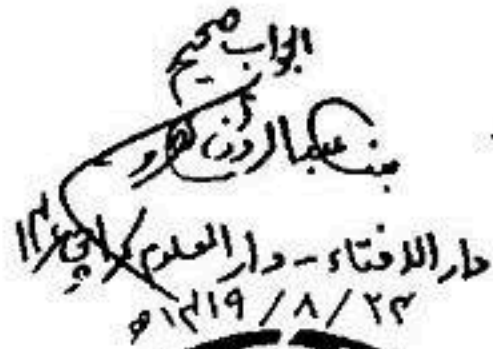 الجواب صحیح
بندہ عبدالرؤف سکھروی
دار الافتاء - دار العلوم کراچی ۱۴
۲۳ / ۸ / ۱۴۱۹ ھ